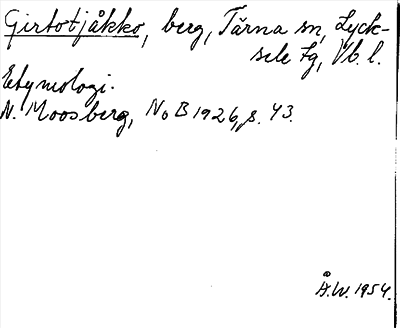 Girtotjåkko, berg, Tärna sn, Lyck-
sele lg, Vb. l.
Etymologi.
N. Moosberg, NoB 1926, s. 43.
Å.W. 1954.